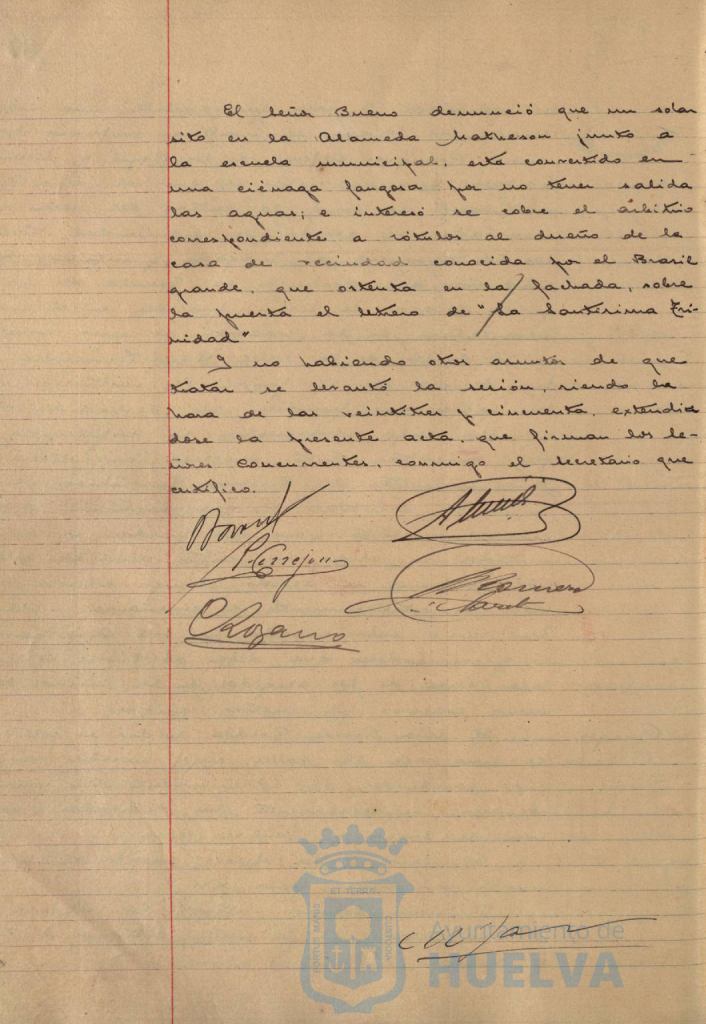 El señor Bueno denunció que un solar
sito en la Alameda Matheson junto a
la escuela municipal, está convertido en
una ciénaga fangosa por no tener salida
las aguas; e interesó se cobre el arbitrio
correspondiente a rótulos al dueño de la
casa de vecindad conocida por el Brasil
grande, que ostenta en la fachada, sobre
la puerta el letrero de "La Santísima Tri-
nidad"
Y no habiendo otros asuntos de que
tratar se levantó la sesión, siendo la
hora de las veintitres y cincuenta, extendien
dose la presente acta, que firman los se-
ñores concurrentes, conmigo el secretario que
certifico.
P. Correjon
Romero
Claret
C Lozano
ET TERRA
PORTUS MARIS
CUSTODIA
Ayuntamiento de
HUELVA